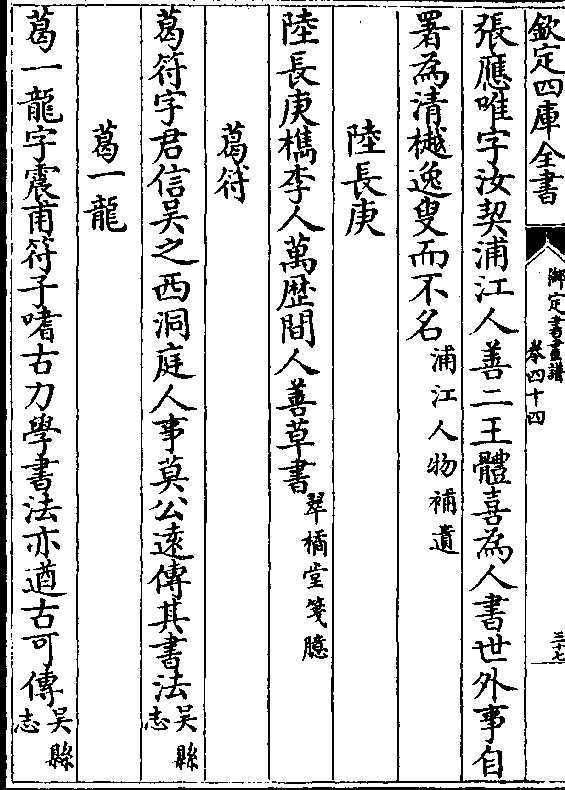 欽定四庫全書
御定書畫譜
卷四十四
三十七
張應唯字汝契浦江人善二王體喜為人書世外事自
署為清樾逸叟而不名浦江人物補遺
陸長庚
陸長庚檇李人萬歴間人善草書翠橘堂箋臆
葛符
葛符字君信吳之西洞庭人事莫公遠傳其書法吳縣志
葛一龍
葛一龍字震甫符子嗜古力學書法亦遒古可傳吳縣志